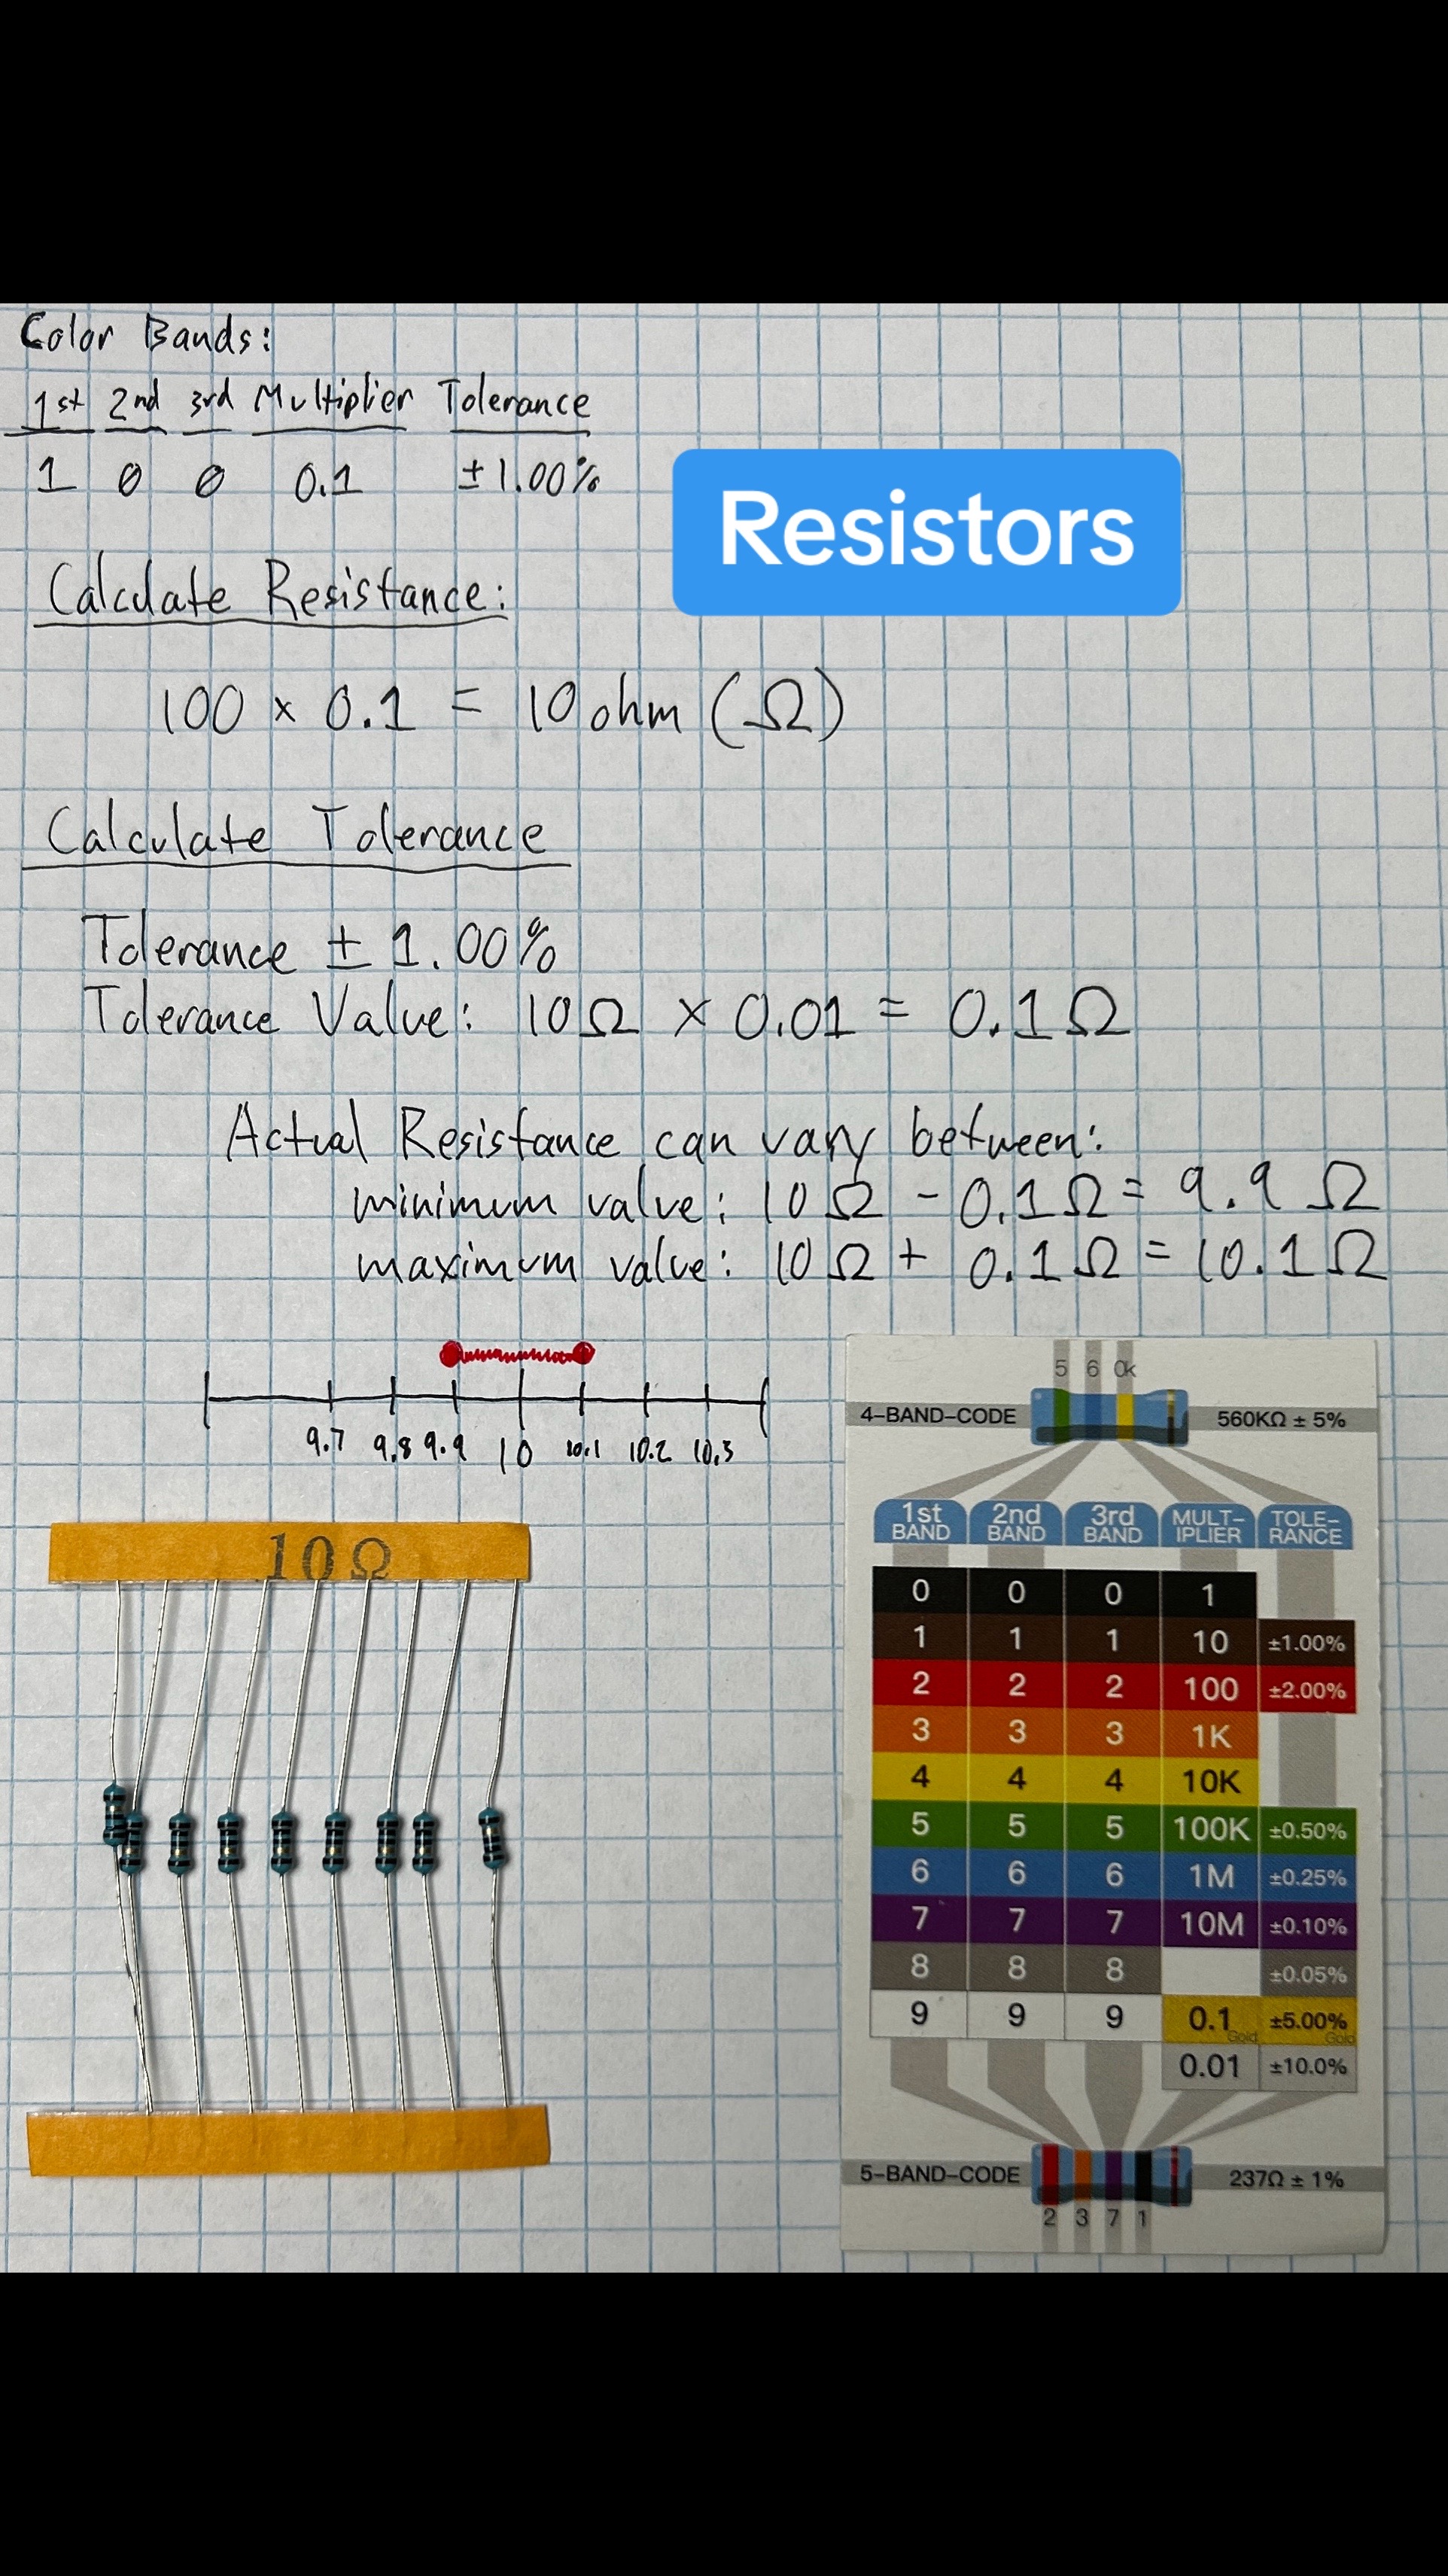 Color Bands:
1st 2nd 3rd Multiplier Tolerance
1 0 0 0.1 ±1.00%
Resistors
Calculate Resistance:
100 × 0.1 = 10 ohm (Ω)
Calculate Tolerance
Tolerance ± 1.00%
Tolerance Value: 10Ω × 0.01 = 0.1Ω
Actual Resistance can vary between:
minimum value: 10Ω - 0.1Ω = 9.9 Ω
maximum value: 10Ω + 0.1Ω = 10.1Ω
9.7 9.8 9.9 10 10.1 10.2 10.3
10Ω
5 6 0k
4-BAND-CODE 560KΩ ± 5%
1st BAND 2nd BAND 3rd BAND MULT-IPLIER TOLE-RANCE
0 0 0 1
1 1 1 10 ±1.00%
2 2 2 100 ±2.00%
3 3 3 1K
4 4 4 10K
5 5 5 100K ±0.50%
6 6 6 1M ±0.25%
7 7 7 10M ±0.10%
8 8 8 ±0.05%
9 9 9 0.1 Gold ±5.00% Gold
0.01 ±10.0%
5-BAND-CODE 237Ω ± 1%
2 3 7 1